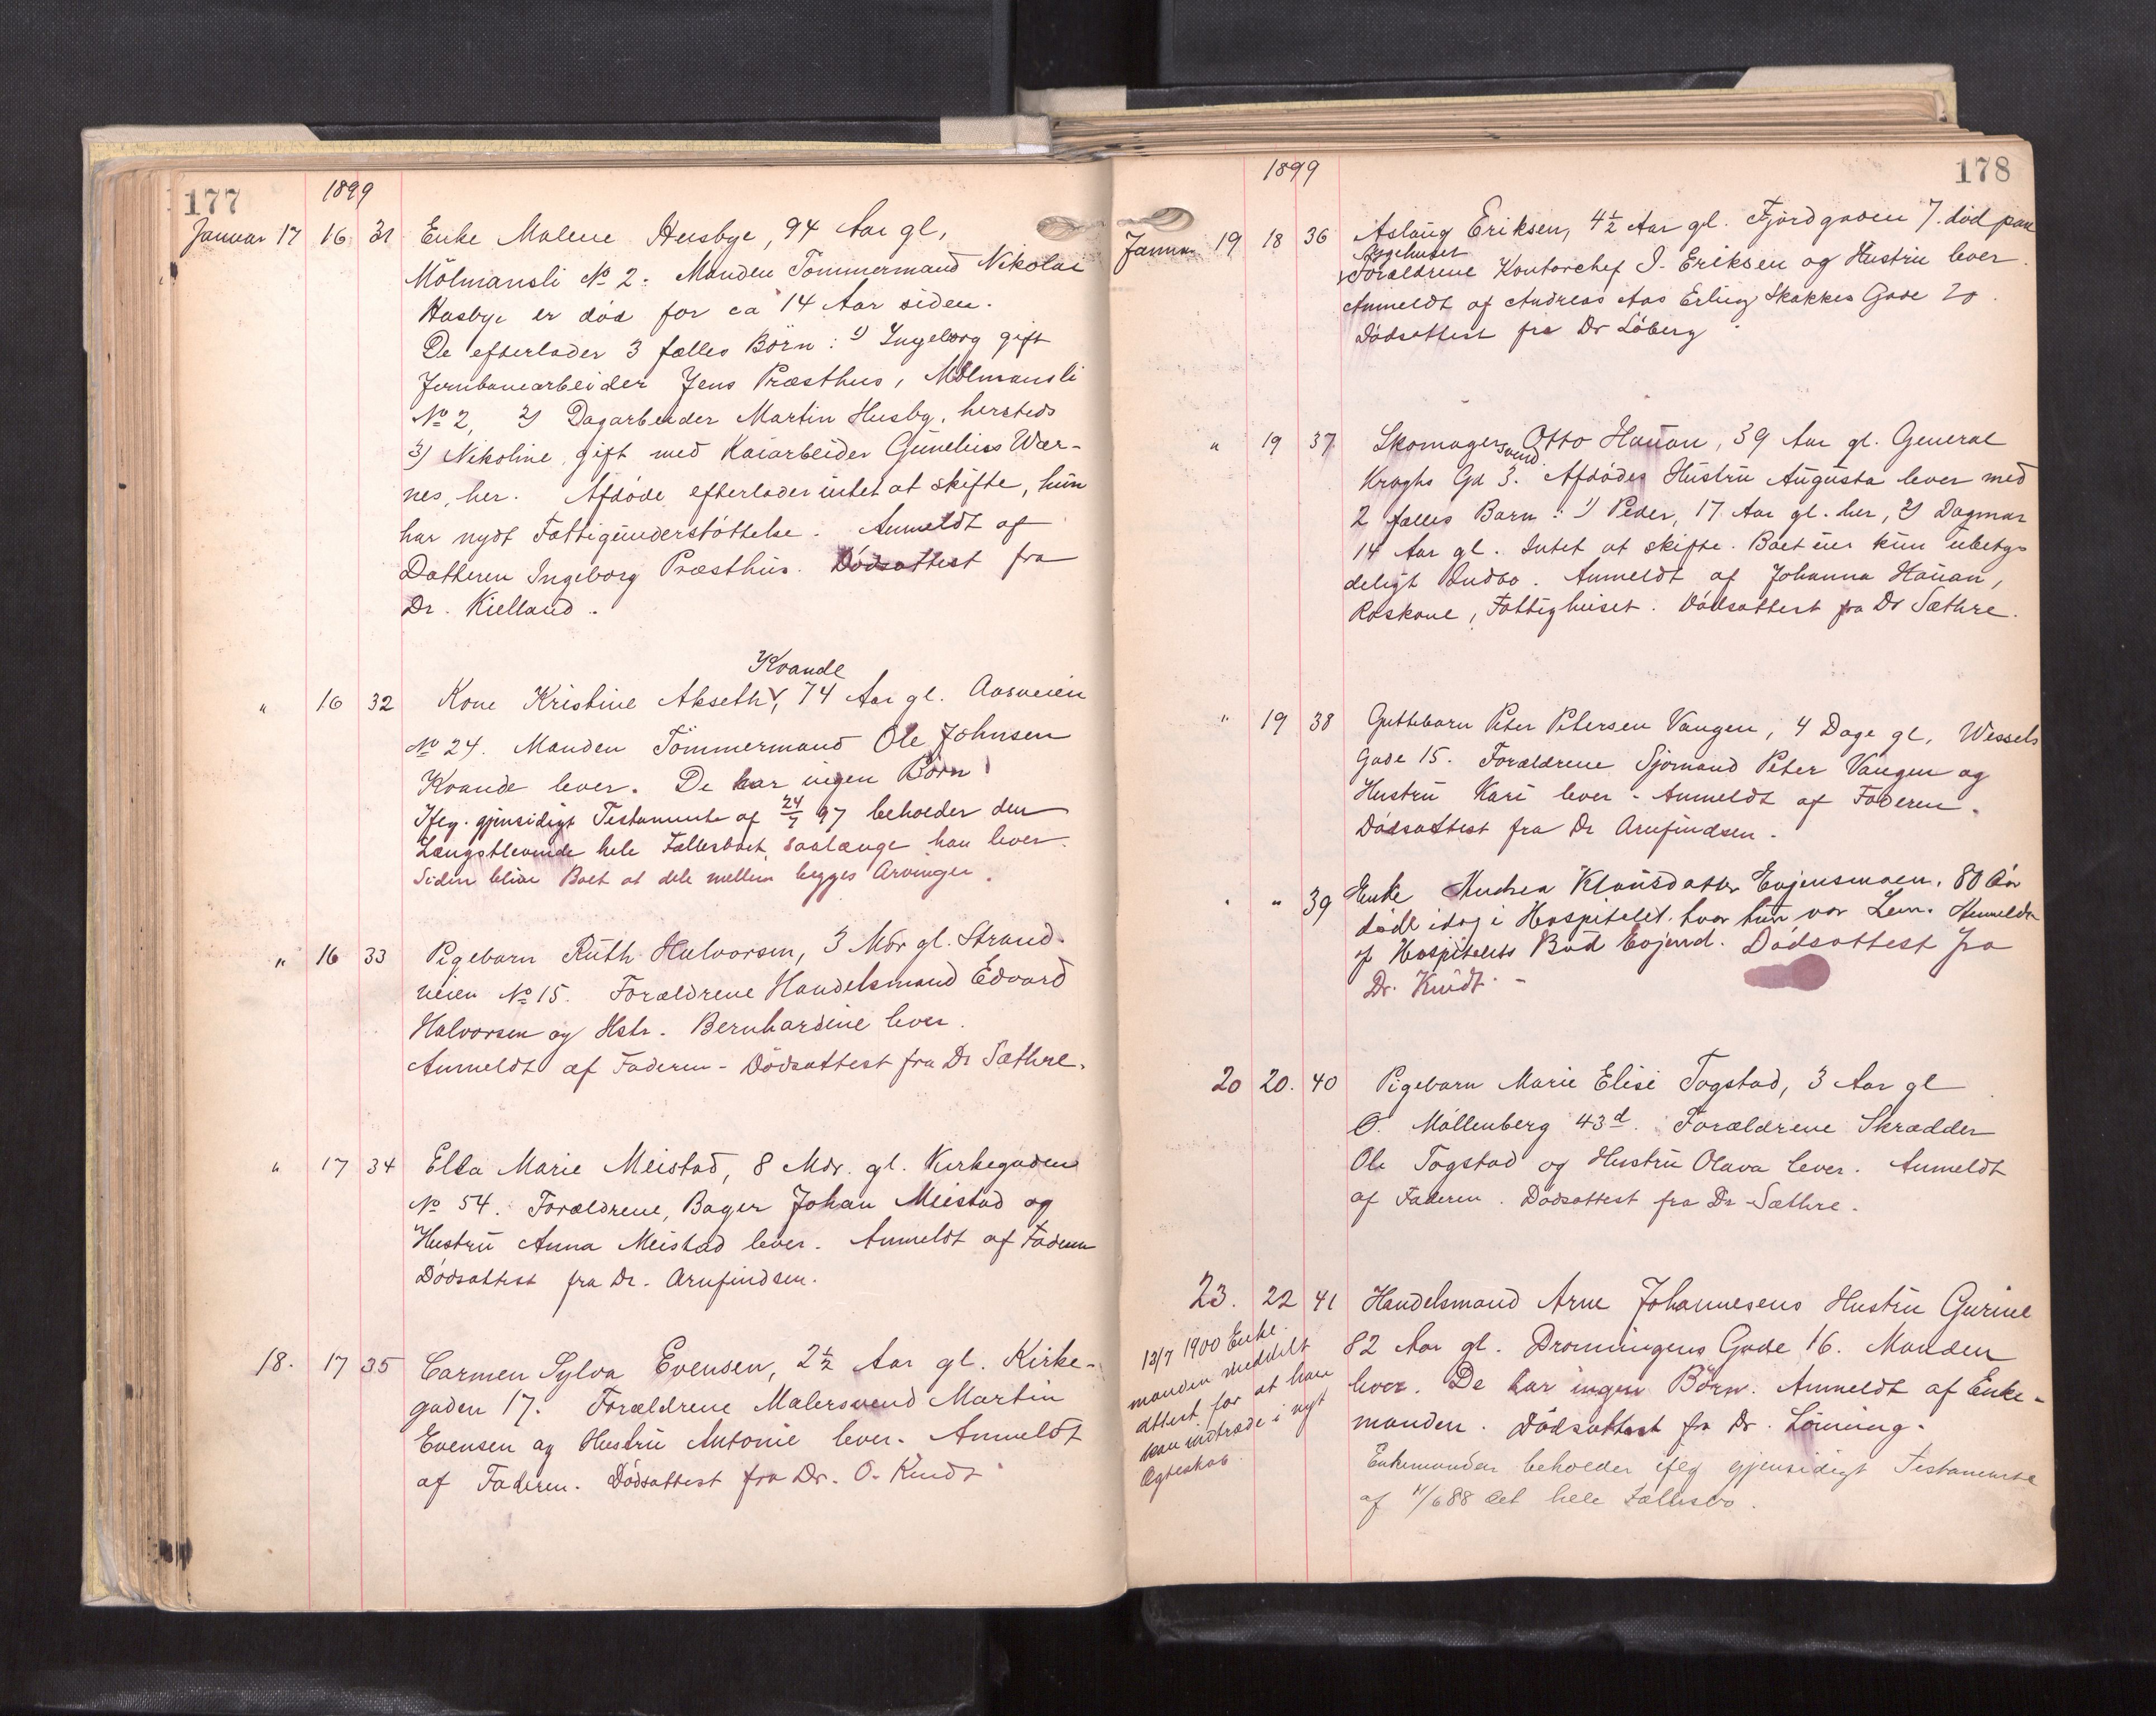 177
1899
Januar 17 16 31 Enke Malene Husbye, 94 Aar gl,
Mölmansli No 2. Manden Tömmermand Nikolai
Husbye er död for ca 14 Aar siden.
De efterlader 3 fælles Börn: 1) Ingeborg gift
Jernbanearbeider Jens Præsthus, Mölmansli
No 2, 2) Dagarbeider Martin Husby, hersteds
3) Nikoline, gift med Kaiarbeider Gunelius Wær-
nes, her. Afdöde efterlader intet at skifte, hun
har nydt Fattigunderstöttelse. Anmeldt af
Datteren Ingeborg Præsthus. Dödsattest fra
Dr. Kielland.
Kvande
" 16 32 Kone Kristine Akseth, 74 Aar gl. Aasveien
No 24. Manden Tömmermand Ole Johnsen
Kvande lever. De har ingen Börn
Ifly. gjensidigt Testamente af 24/7 97 beholder den
Længstlevende hele Fællesboet, saalænge han lever.
Siden blive Boet at dele mellem begges Arvinger.
" 16 33 Pigebarn Ruth Halvorsen, 3 Mdr gl. Strand-
veien No 15. Forældrene Handelsmand Edvard
Halvorsen og Hstr. Bernhardine lever.
Anmeldt af Faderen - Dödsattest fra Dr Sæthre.
" 17 34 Ella Marie Meistad, 8 Mdr. gl. Kirkegaden
No 54. Forældrene, Bager Johan Meistad og
Hustru Anna Meistad lever. Anmeldt af Faderen
Dödsattest fra Dr. Arnfindsen.
18. 17 35 Carmen Sylva Evensen, 2½ Aar gl. Kirke-
gaden 17. Forældrene Malersvend Martin
Evensen og Hustru Antonie lever. Anmeldt
af Faderen. Dödsattest fra Dr. O. Kindt
178
1899
Januar 19 18 36 Aslaug Eriksen, 4½ Aar gl. Fjordgaden 7. död paa
Sygehuset
Forældrene Kontorchef I. Eriksen og Hustru lever.
Anmeldt af Andreas Aas Erling Skakkes Gade 20.
Dödsattest fra Dr Löberg
" 19 37 Skomagersvend Otto Hauan, 39 Aar gl. General
Kroghs Gd 3. Afdödes Hustru Augusta lever med
2 fælles Barn: 1) Peder, 17 Aar gl. her, 2) Dagmar
14 Aar gl. Intet at skifte. Boet eier kun ubety-
deligt Indbo. Anmeldt af Johanna Hauan,
Raskone, Fattighuset. Dödsattest fra Dr Sæthre.
" 19 38 Guttebarn Peter Petersen Vangen, 4 Dage gl, Wessels
Gade 15. Forældrene Sjömand Peter Vangen og
Hustru Kari lever - Anmeldt af Faderen.
Dödsattest fra Dr Arnfindsen.
" " 39 Enke Andrea Klausdatter Evjensmoen, 80 År
døde idag i Hospitalet, hvor hun var Lem. Anmeldt
af Hospitalets Bud Evjend. Dødsattest fra
Dr. Kindt. -
20 20. 40 Pigebarn Marie Elise Togstad, 3 Aar gl
Ö. Möllenberg 43d. Forældrene Skrædder
Ole Togstad og Hustru Olava lever. Anmeldt
af Faderen. Dödsattest fra Dr Sæthre.
23. 22 41 Handelsmand Arne Johannesens Hustru Gurine
82 Aar gl. Dronningens Gade 16. Manden
lever. De har ingen Börn. Anmeldt af Enke-
manden. Dödsattest fra Dr. Löining.
Enkemanden beholder iflg gjensidigt Testamente
af 11/6 88 det hele Fællesbo.
13/7 1900 Enke-
manden meddelt
attest for at han
kan indtræde i nyt
Ægteskab